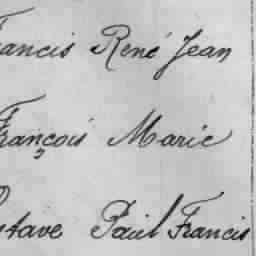 Francis René Jean
François Marie
Gustave Paul Francis